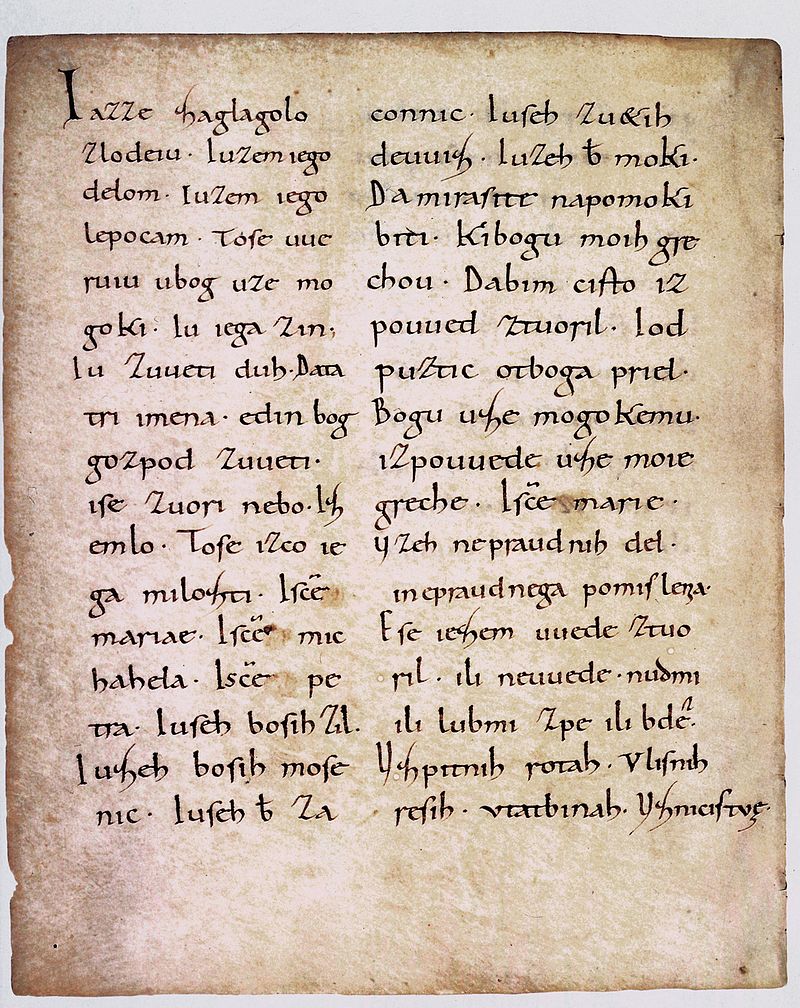 Iazze zaglagolo
zlodeiu. Iuzem iego
delom. Iuzem iego
lepocam. Tose uue
ruiu ubog uze mo
goki. Iu iega zin,
Iu zuueti duh. Data
tri imena. edin bog
gozpod zuueti.
ise zuori nebo. Iz
emlo. Tose izco ie
ga milozti. Iscē
mariae. Iscē mic
hahela. Iscē pe
tra. Iuseh bosih zil.
Iuzeh bosih mose
nic. Iuseh ƀ za
connic. Iuseh zu&ih
deuuiz. Iuzeh ƀ moki.
Da mirasite napomoki
biti. Kibogu moih gre
chou. Dabim cisto iz
pouued ztuoril. Iod
puztic otboga priel.
Bogu uze mogokemu.
izpouuede uze moie
greche. Iscē marie.
Uzeh nepraudnih del.
inepraudnega pomislena.
Ese iezem uuede ztuo
ril. ili neuuede. nudmi
ili lubmi zpe ili bde.
Uzpitnih rotah. Vlisnih
resih. vtatbinah. Uznicistve.